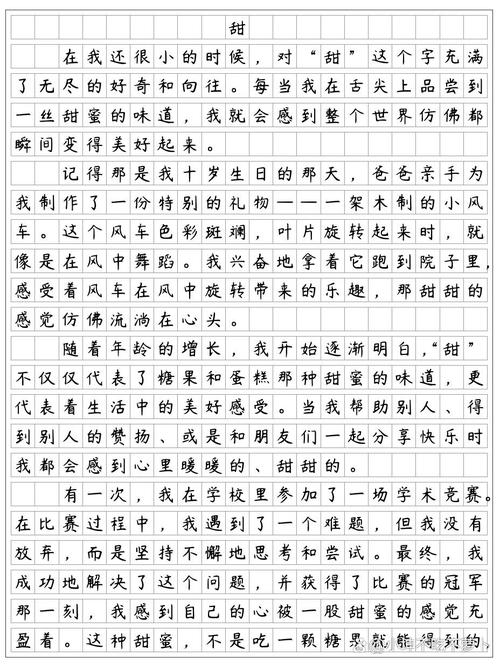 甜
在我还很小的时候，对“甜”这个字充满
了无尽的好奇和向往。每当我在舌尖上品尝到
一丝甜蜜的味道，我就会感到整个世界仿佛都
瞬间变得美好起来。
记得那是我十岁生日的那天，爸爸亲手为
我制作了一份特别的礼物——一架木制的小风
车。这个风车色彩斑斓，叶片旋转起来时，就
像是在风中舞蹈。我兴奋地拿着它跑到院子里，
感受着风车在风中旋转带来的乐趣，那甜甜的
感觉仿佛流淌在心头。
随着年龄的增长，我开始逐渐明白，“甜”
不仅仅代表了糖果和蛋糕那种甜蜜的味道，更
代表着生活中的美好感受。当我帮助别人、得
到别人的赞扬、或是和朋友们一起分享快乐时
我都会感到心里暖暖的、甜甜的。
有一次，我在学校里参加了一场学术竞赛。
在比赛过程中，我遇到了一个难题，但我没有
放弃，而是坚持不懈地思考和尝试。最终，我
成功地解决了这个问题，并获得了比赛的冠军
那一刻，我感到自己的心被一股甜蜜的感觉充
盈着。这种甜蜜，不是吃一颗糖果就能得到的